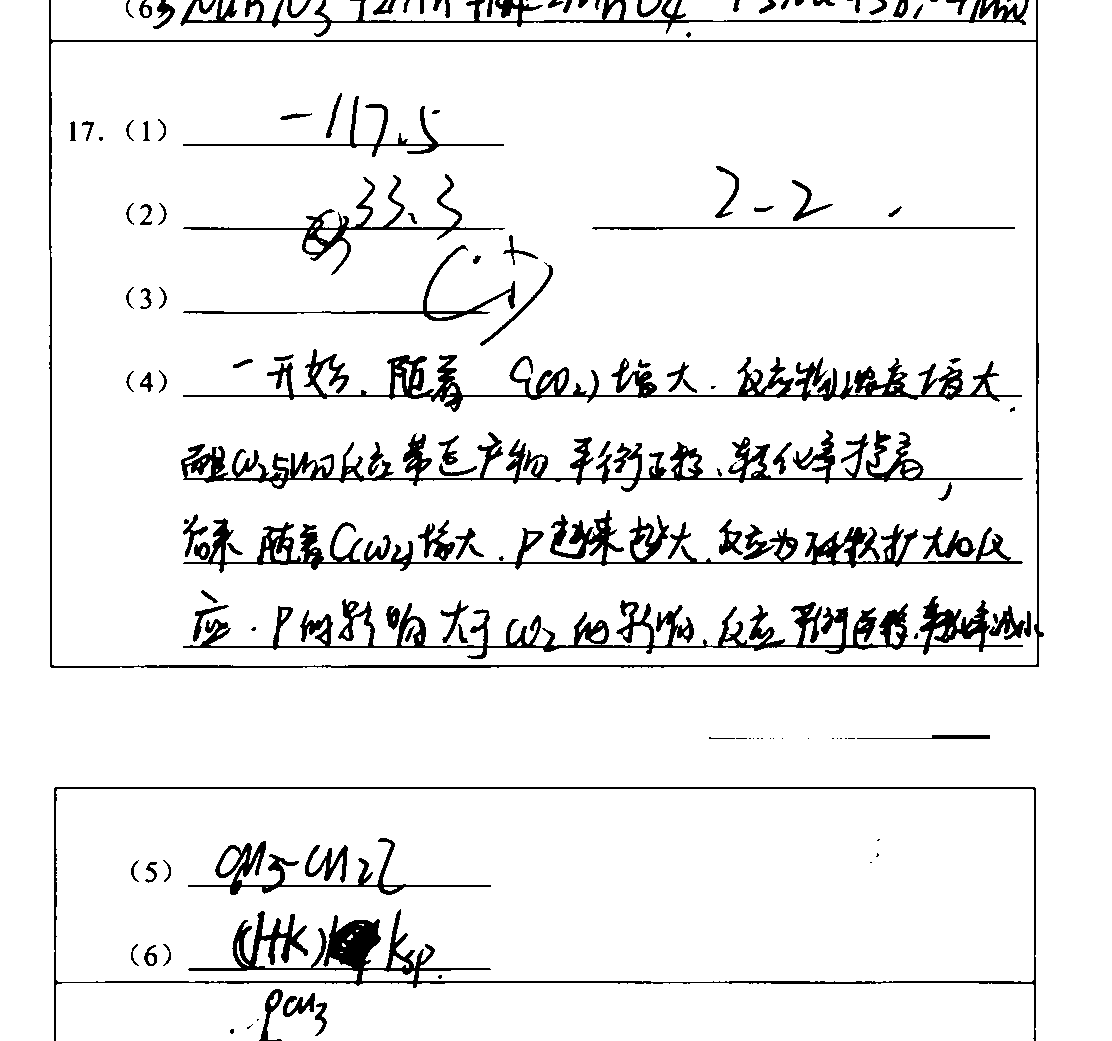 (6)
17. (1) -117.5
(2) 33.3 2-2
(3)
(4) 一开始.随着 C(CO2)增大.反应物浓度增大.
反应 产物.平衡正移、转化率提高,
后来 随着C(CO2)增大.P越来越大.反应为体积扩大的反
应.P的影响大于CO2的影响.反应平衡逆移.转化率减小
(5) CH3-CH2
(6) (1+K) Ksp.
OCH3